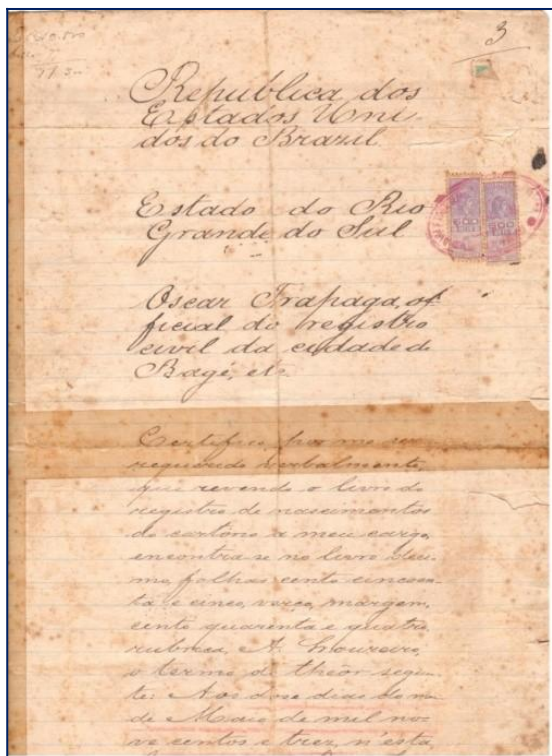 3
Republica dos
Estados Uni
dos do Brazil
Estado do Rio
Grande do Sul
Oscar Trapaga, of
ficial do registro
civil da cidade de
Bagé, etc.
Certifico, por me ser
requerido verbalmente,
que revendo o livro de
registro de nascimentos
do cartorio a meu cargo,
encontra-se no livro deci-
mo, folhas cento cincoen-
ta e cinco, verso, margem,
cento quarenta e quatro,
rubrica, A. Loureiro,
o termo do thêor seguin-
te: Aos doze dias do mez
de Maio de mil no-
ve centos e trez, n'esta